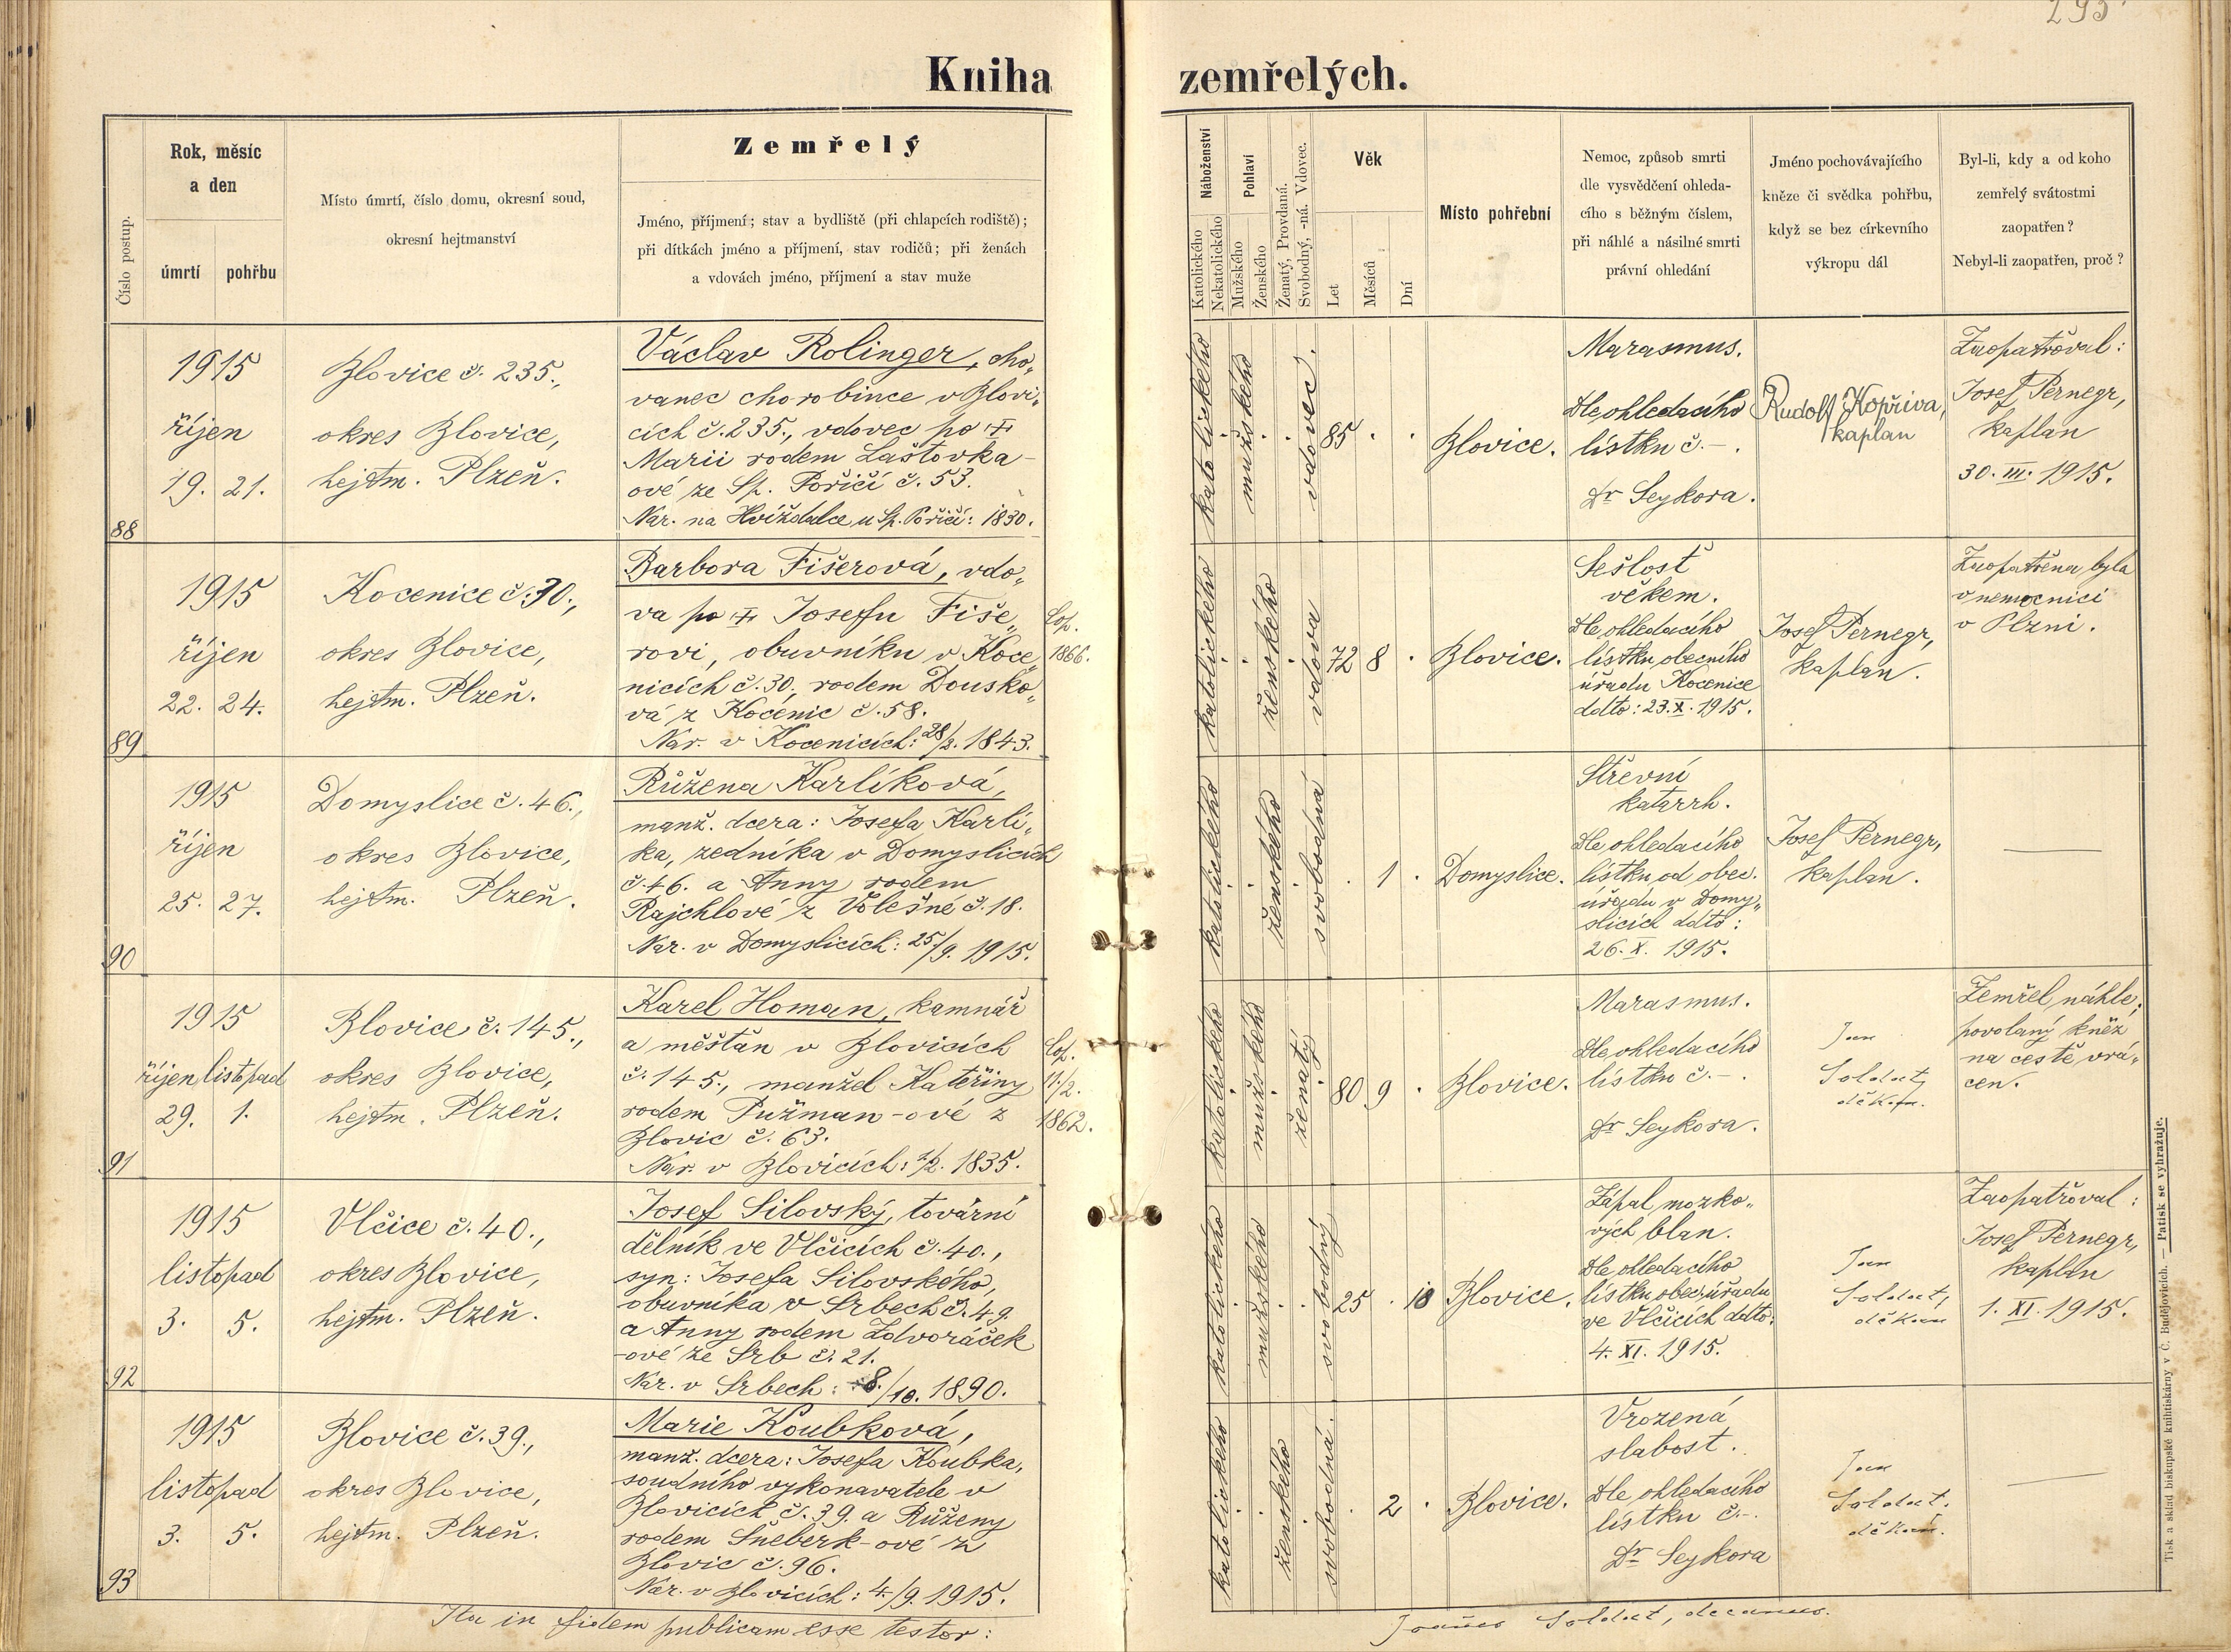 293
Kniha zemřelých.
Číslo postup.
Rok, měsíc
a den
úmrtí pohřbu
Místo úmrtí, číslo domu, okresní soud,
okresní hejtmanství
Zemřelý
Jméno, příjmení; stav a bydliště (při chlapcích rodiště);
při dítkách jméno a příjmení, stav rodičů; při ženách
a vdovách jméno, příjmení a stav muže
Náboženství
Katolického
Nekatolického
Pohlaví
Mužského
Ženského
Ženatý, Provdaná.
Svobodný, -ná. Vdovec.
Věk
Let
Měsíců
Dní
Místo pohřební
Nemoc, způsob smrti
dle vysvědčení ohleda-
cího s běžným číslem,
při náhlé a násilné smrti
právní ohledání
Jméno pochovávajícího
kněze či svědka pohřbu,
když se bez církevního
výkropu dál
Byl-li, kdy a od koho
zemřelý svátostmi
zaopatřen?
Nebyl-li zaopatřen, proč?
88
1915
říjen
19. 21.
Blovice č. 235.,
okres Blovice,
hejtm. Plzeň.
Václav Rolinger, cho„
vanec chorobince v Blovi„
cích č. 235., vdovec po
Marii rodem Laštovka-
ové ze Sp. Poříčí č. 53.
Nar. na Hvížďalce u Sp. Poříčí: 1830.
katolického
mužského
vdovec.
85
Blovice.
Marasmus.
Dle ohledacího
lístku č. -.
Dr Seykora.
Rudolf Kopřiva,
kaplan
Zaopatřoval:
Josef Pernegr,
kaplan
30. III. 1915.
89
1915
říjen
22. 24.
Kocenice č. 30.,
okres Blovice,
hejtm. Plzeň.
Barbora Fišerová, vdo„
va po Josefu Fiše„
rovi, obuvníku v Koce„
nicích č. 30., rodem Dousko„
vá z Kocenic č. 58.
Nar. v Kocenicích: 28/2. 1843.
Cop.
1866.
katolického
ženského
vdova
72 8
Blovice.
Sešlost
věkem.
Dle ohledacího
lístku obecního
úřadu Kocenice
ddto: 23. X. 1915.
Josef Pernegr,
kaplan.
Zaopatřena byla
v nemocnici
v Plzni.
90
1915
říjen
25. 27.
Domyslice č. 46.,
okres Blovice,
hejtm. Plzeň.
Růžena Karlíková,
manž. dcera: Josefa Karlí„
ka, zedníka v Domyslicích
č. 46. a Anny rodem
Rajchlové z Volešné č. 18.
Nar. v Domyslicích: 25./9. 1915.
katolického
ženského
svobodná
1
Domyslice.
Střevní
katarrh.
Dle ohledacího
lístku od obec.
úřadu v Domy„
slicích ddto:
26. X. 1915.
Josef Pernegr,
kaplan.
91
1915
říjen listopad
29. 1.
Blovice č. 145.,
okres Blovice,
hejtm. Plzeň.
Karel Homan, kamnář
a měšťan v Blovicích
č. 145., manžel Kateřiny
rodem Pužman-ové z
Blovic č. 63.
Nar. v Blovicích: /2. 1835.
Cop.
11./2.
1862.
katolického
mužského
ženatý
80 9
Blovice.
Marasmus.
Dle ohledacího
lístku č. -.
Dr Seykora.
Jan
Soldat,
děkan.
Zemřel náhle;
povolaný kněz
na cestě vrá„
cen.
92
1915
listopad
3. 5.
Vlčice č. 40.,
okres Blovice,
hejtm. Plzeň.
Josef Silovský, tovární
dělník ve Vlčicích č. 40.,
syn: Josefa Silovského,
obuvníka v Srbech č. 49.
a Anny rodem Zdvoráček
-ové ze Srb č. 21.
Nar. v Srbech: 8./10. 1890.
katolického
mužského
svobodný
25 18
Blovice.
Zápal mozko„
vých blan.
Dle ohledacího
lístku obec. úřadu
ve Vlčicích ddto:
4. XI. 1915.
Jan
Soldat,
děkan
Zaopatřoval:
Josef Pernegr,
kaplan
1. XI. 1915.
93
1915
listopad
3. 5.
Blovice č. 39.,
okres Blovice,
hejtm. Plzeň.
Marie Koubková,
manž. dcera: Josefa Koubka,
soudního vykonavatele v
Blovicích č. 39. a Růženy
rodem Šneberk-ové z
Blovic č. 96.
Nar. v Blovicích: 4./9. 1915.
katolického
ženského
svobodná.
2
Blovice.
Vrozená
slabost.
Dle ohledacího
lístku č. -.
Dr Seykora
Jan
Soldat.
děkan.
Ita in fidem publicam esse testor:
Joannes Soldat, decanus.
Tisk a sklad biskupské knihtiskárny v Č. Budějovicích. — Patisk se vyhražuje.